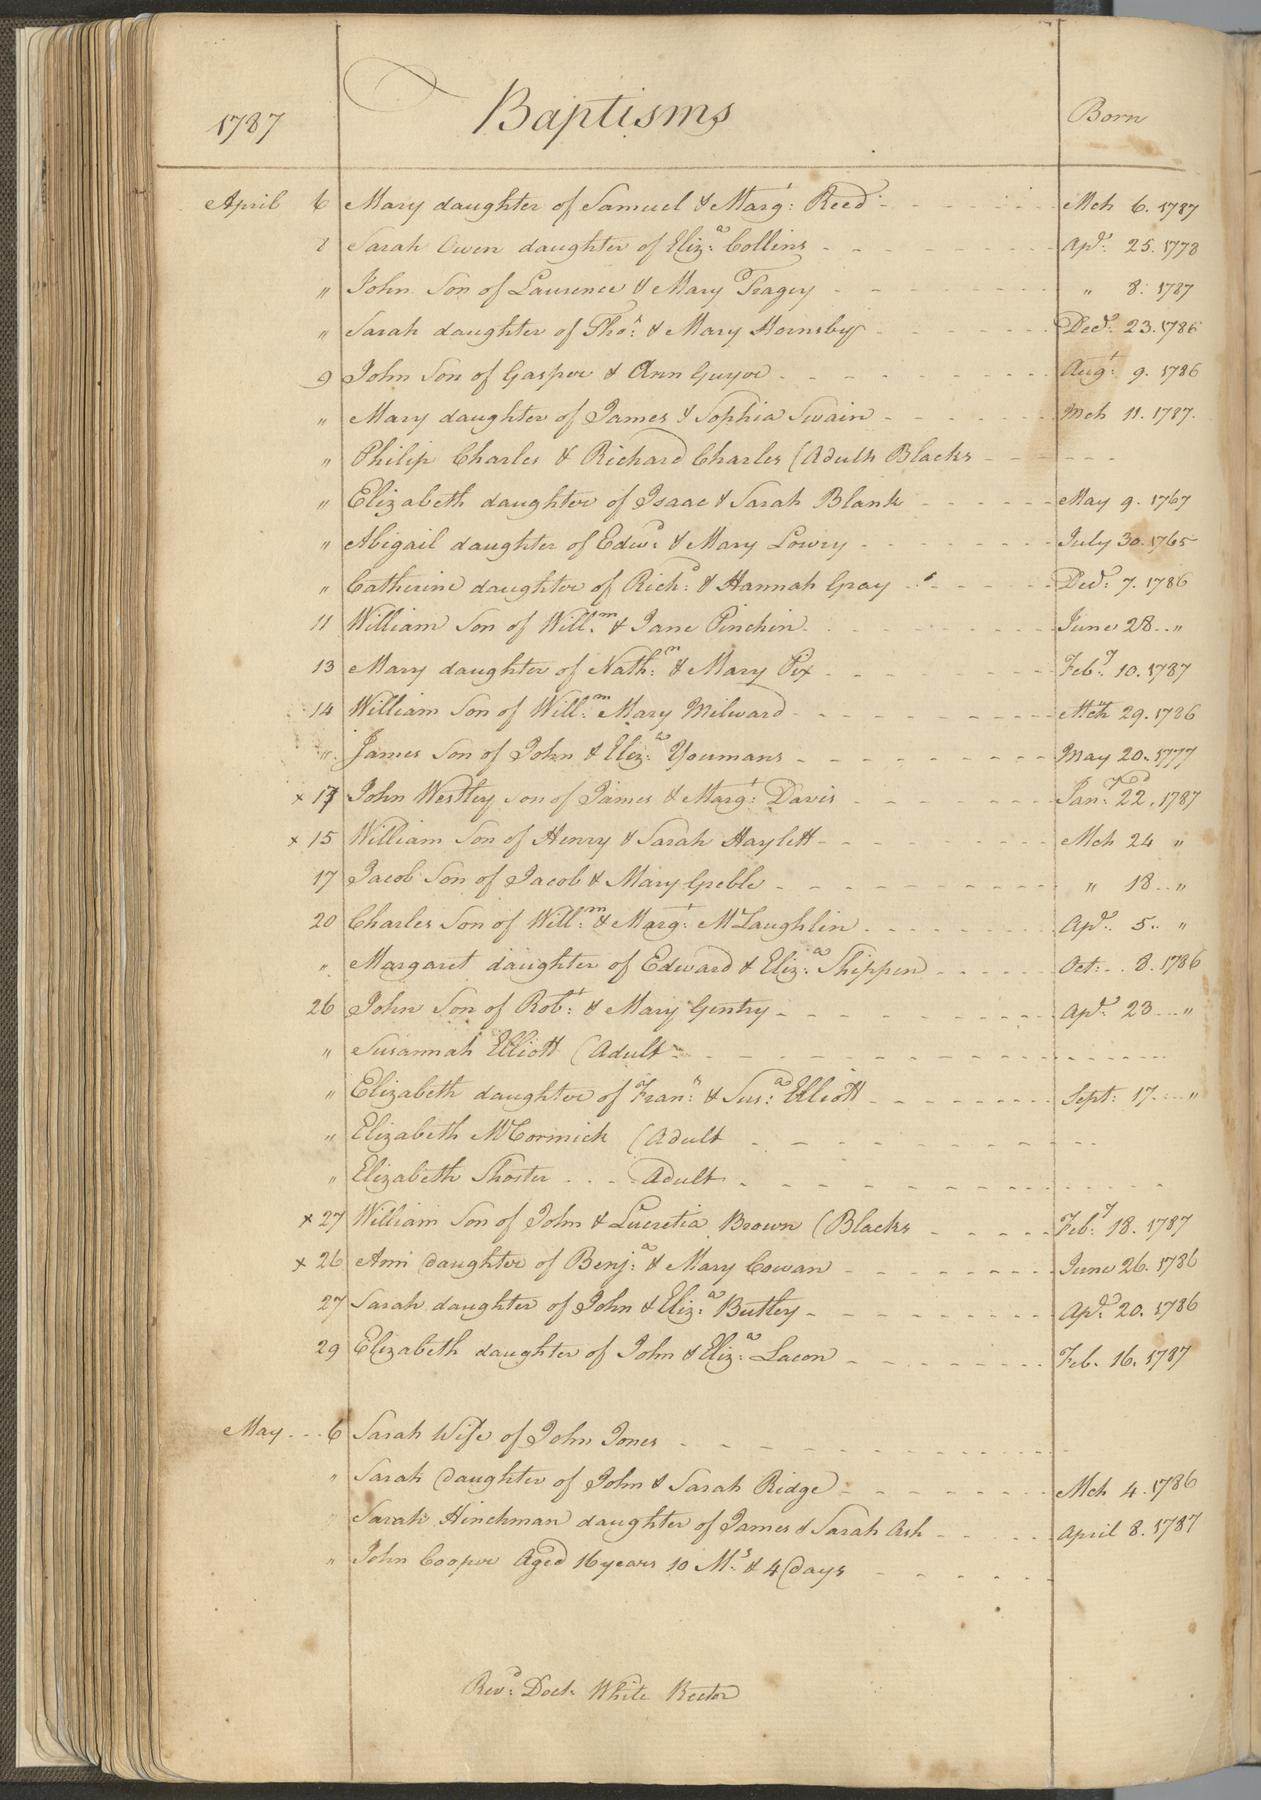 1787 Baptisms Born
April 6 Mary daughter of Samuel & Marg.t Reed Mch 6. 1787
8 Sarah Owen daughter of Eliz.a Collins Ap.l 25. 1778
" John Son of Laurence & Mary Fragey " 8. 1787
" Sarah daughter of Tho.s & Mary Hornsby Dec.r 23. 1786
9 John Son of Gasper & Ann Guyer Aug.t 9. 1786
" Mary daughter of James & Sophia Swain Mch 11. 1787.
" Philip Charles & Richard Charles (Adults Blacks
" Elizabeth daughter of Isaac & Sarah Blank May 9. 1767
" Abigail daughter of Edw.d & Mary Lowry July 30. 1765
" Catherine daughter of Rich.d & Hannah Gray Dec.r 7. 1786
11 William Son of Will.m & Jane Pinchin June 28 "
13 Mary daughter of Nath.n & Mary Pix Feb.y 10. 1787
14 William Son of Will.m Mary Milward Mch 29. 1786
" James Son of John & Eliz.a Youmans May 20. 1777
x 17 John Westley Son of James & Marg.t Davis Jan.y 22. 1787
x 15 William Son of Henry & Sarah Haylett Mch 24 "
17 Jacob Son of Jacob & Mary Greble " 18 "
20 Charles Son of Will.m & Marg.t McLaughlin Ap.l 5 "
" Margaret daughter of Edward & Eliz.a Shippen Oct: 8. 1786
26 John Son of Rob.t & Mary Gentry Ap.l 23 "
" Susannah Elliott (Adult
" Elizabeth daughter of Fran.s & Sus.a Elliott Sept: 17 "
" Elizabeth McCormick (Adult
" Elizabeth Shoster Adult
x 27 William Son of John & Lucretia Brown (Blacks Feb.y 18. 1787
x 26 Ann daughter of Benj.a & Mary Cowan June 26. 1786
27 Sarah daughter of John & Eliz.a Butley Ap.l 20. 1786
29 Elizabeth daughter of John & Eliz.a Lacon Feb. 16. 1787
May 6 Sarah Wife of John Jones
" Sarah daughter of John & Sarah Ridge Mch 4. 1786
" Sarah Hinchman daughter of James & Sarah Ash April 8. 1787
" John Cooper Aged 16 years 10 M.s & 4 days
Rev.d Doct. White Rector